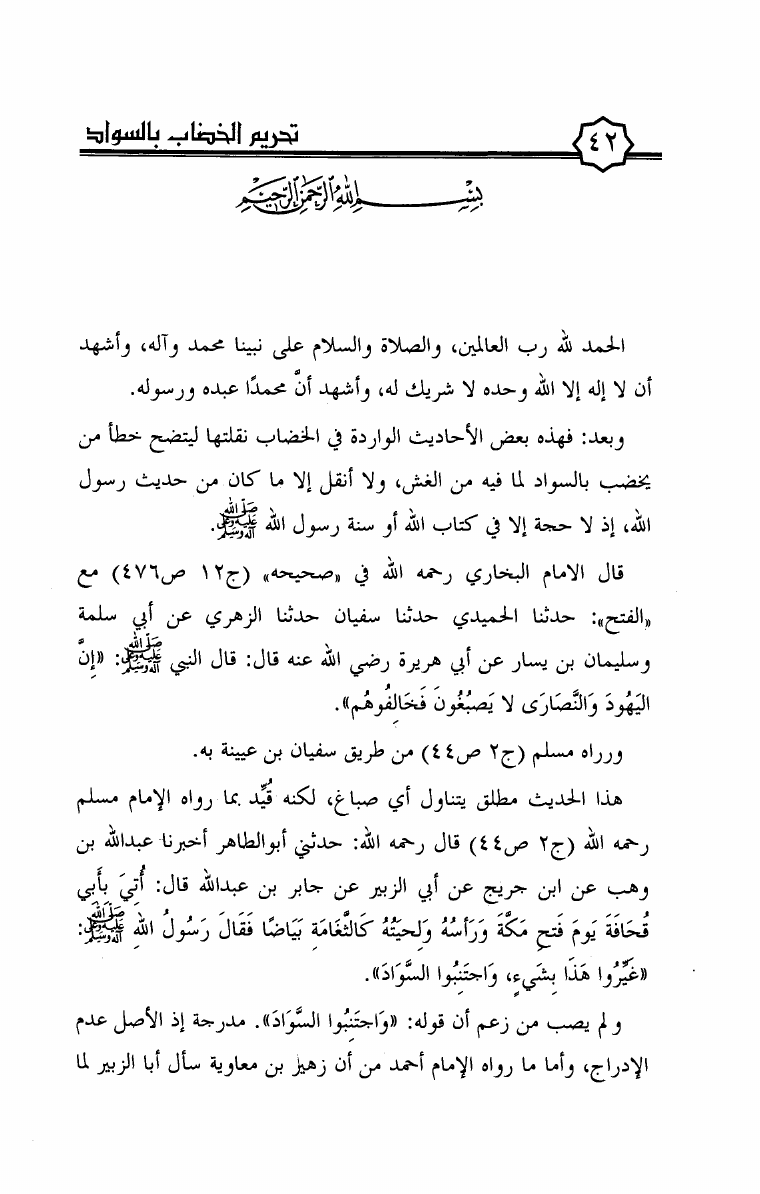 تحريم الخضاب بالسواد
٤٢
بسم الله الرحمن الرحيم
الحمد لله رب العالمين، والصلاة والسلام على نبينا محمد وآله، وأشهد
أن لا إله إلا الله وحده لا شريك له، وأشهد أنَّ محمدًا عبده ورسوله.
وبعد: فهذه بعض الأحاديث الواردة في الخضاب نقلتها ليتضح خطأ من
يخضب بالسواد لما فيه من الغش، ولا أنقل إلا ما كان من حديث رسول
الله، إذ لا حجة إلا في كتاب الله أو سنة رسول الله ﷺ.
قال الامام البخاري رحمه الله في «صحيحه» (ج١٢ ص٤٧٦) مع
«الفتح»: حدثنا الحميدي حدثنا سفيان حدثنا الزهري عن أبي سلمة
وسليمان بن يسار عن أبي هريرة رضي الله عنه قال: قال النبي ﷺ: «إِنَّ
اليَهُودَ وَالنَّصَارَى لا يَصبُغُونَ فَخَالِفُوهُم».
ورراه مسلم (ج٢ ص٤٤) من طريق سفيان بن عيينة به.
هذا الحديث مطلق يتناول أي صباغ، لكنه قُيِّد بما رواه الإمام مسلم
رحمه الله (ج٢ ص٤٤) قال رحمه الله: حدثني أبوالطاهر أخبرنا عبدالله بن
وهب عن ابن جريج عن أبي الزبير عن جابر بن عبدالله قال: أُتِيَ بِأَبِي
قُحَافَةَ يَومَ فَتحِ مَكَّةَ وَرَأسُهُ وَلِحيَتُهُ كَالثَّغَامَةِ بَيَاضًا فَقَالَ رَسُولُ اللهِ ﷺ:
«غَيِّرُوا هَذَا بِشَيءٍ، وَاجتَنِبُوا السَّوَادَ».
ولم يصب من زعم أن قوله: «وَاجتَنِبُوا السَّوَادَ». مدرجة إذ الأصل عدم
الإدراج، وأما ما رواه الإمام أحمد من أن زهير بن معاوية سأل أبا الزبير لما